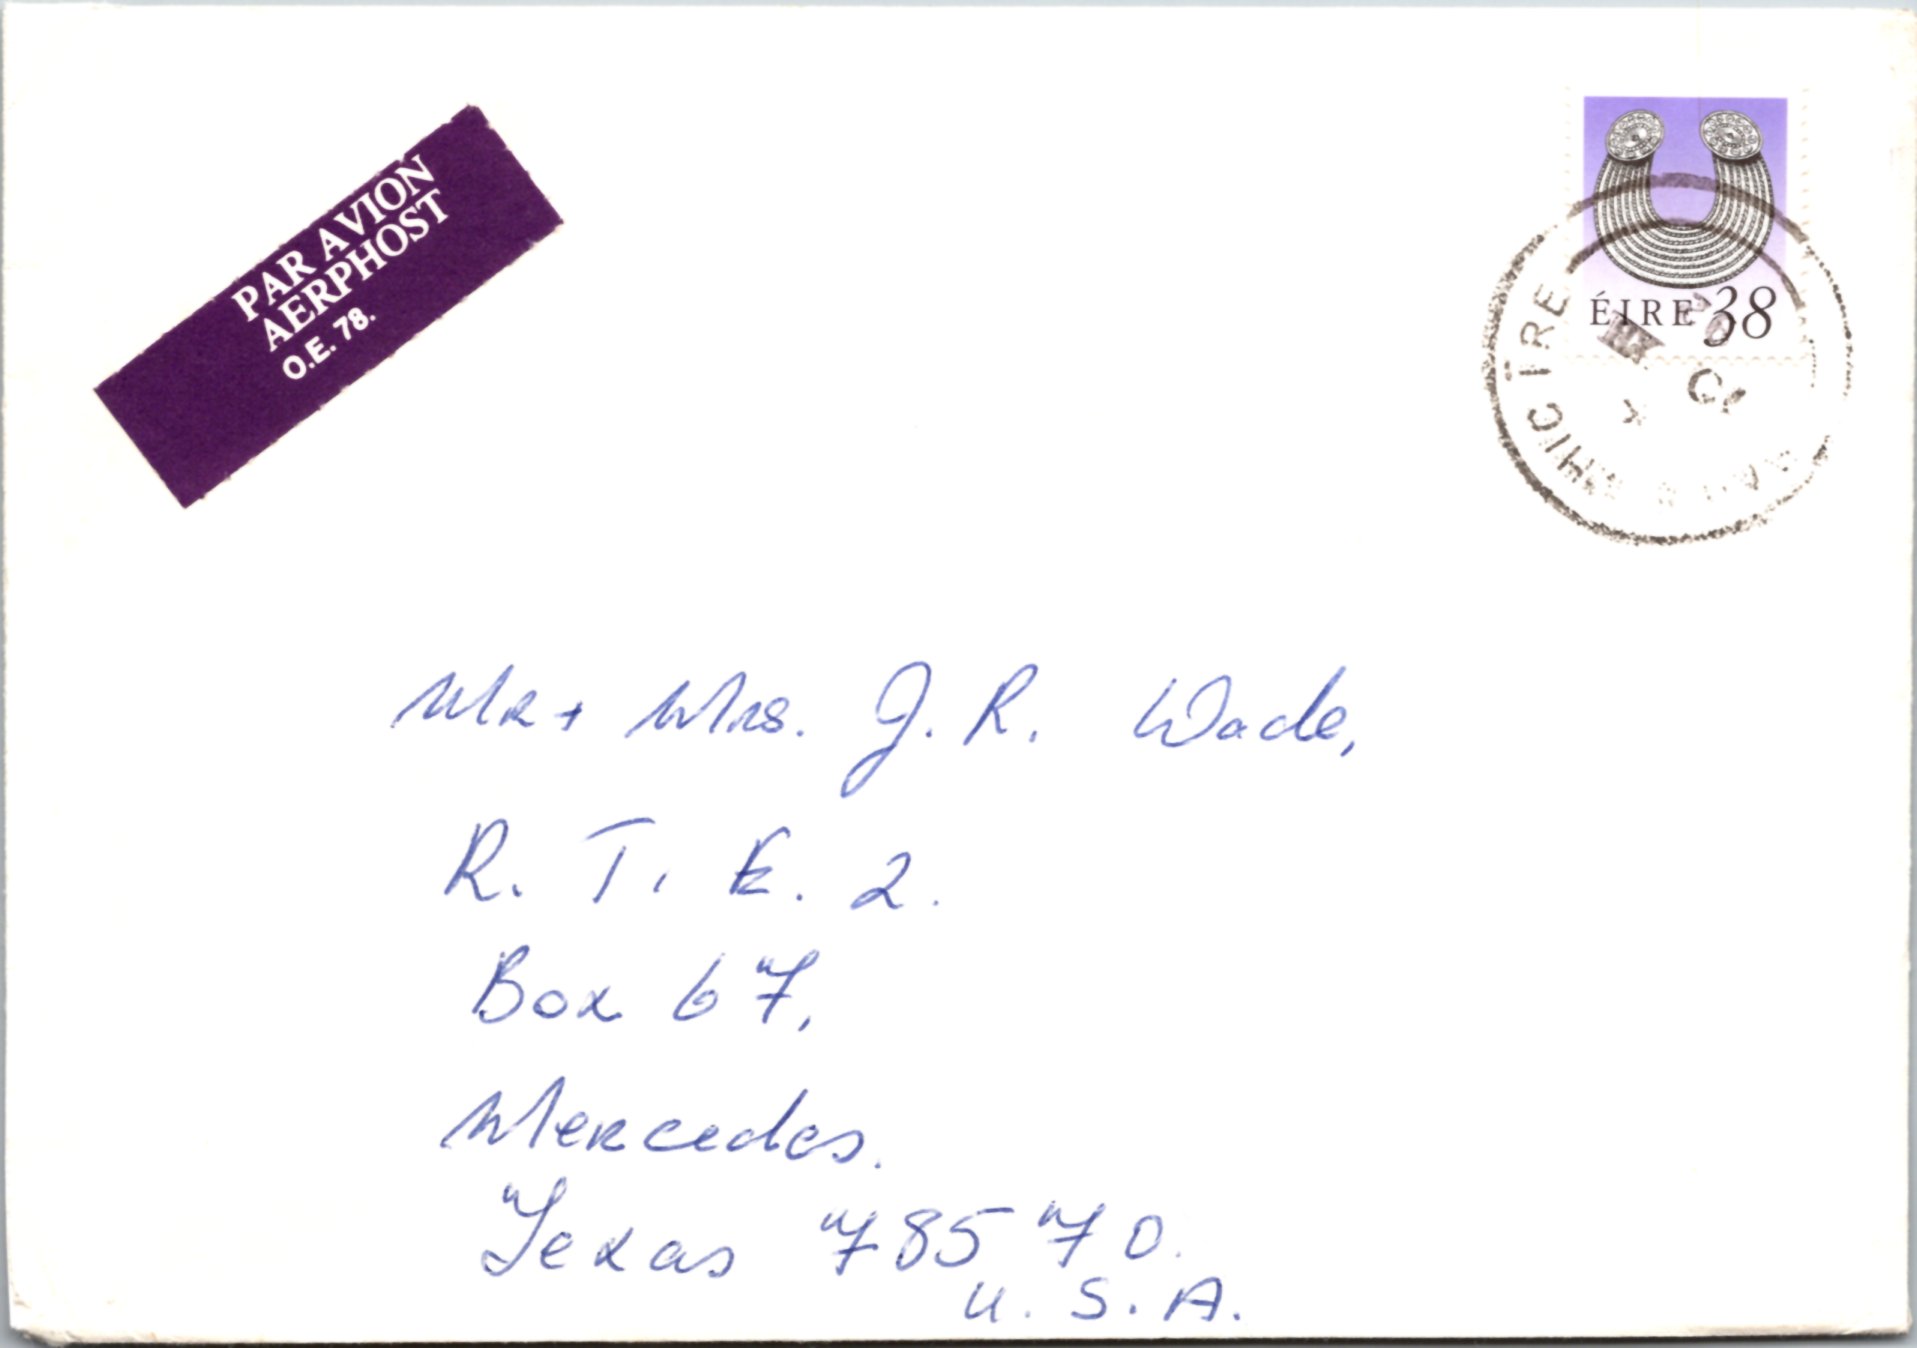 PAR AVION
AERPHOST
O.E. 78.
ÉIRE 38
Mr + Mrs. J. R. Wade,
R. T. E. 2.
Box 67,
Mercedes.
Texas 78570.
U. S. A.